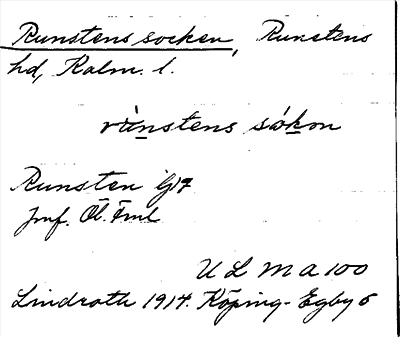 Runstens socken, Runstens
hd, Kalm. l.
rùnstens sókon
Runsten G17
Jmf. Öl. Fml
ULMA 100
Lindroth 1914. Köping-Egby 6